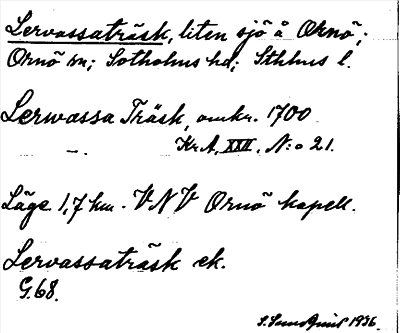 Lervassaträsk, liten sjö å Ornö;
Ornö sn; Sotholms hd; Sthlms l.
Lerwassa Träsk, omkr. 1700
—. Kr.A. XXII. N:o 21.
Läge. 1,7 km. VNV Ornö kapell.
Lervassaträsk ek.
G.68.
S. Sundqvist 1936.